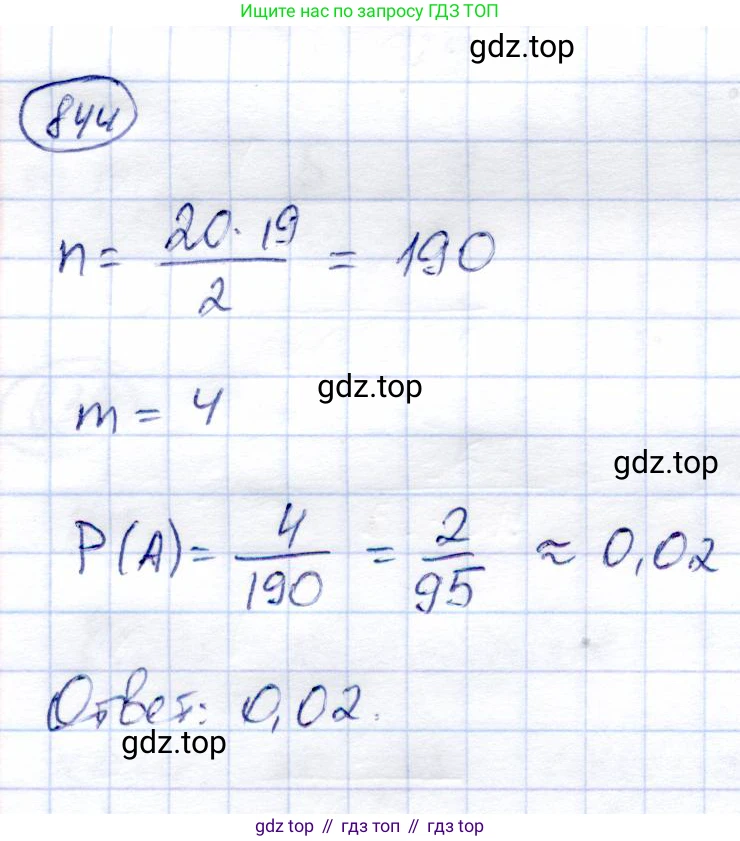 Ищите нас по запросу ГДЗ ТОП
gdz.top
844
n = 20·19/2 = 190
gdz.top
m = 4
gdz.top
P(A) = 4/190 = 2/95 ≈ 0,02
Ответ: 0,02.
gdz.top
gdz top // гдз топ // gdz top